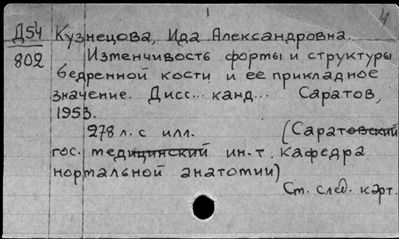 1
4
Д54 Кузнецова, Ида Александровна.
802 Изменчивость формы и структуры
бедренной кости и ее прикладное
значение. Дисс... канд... Саратов,
1953.
278 л. с илл. (Саратовский
гос. медицинский ин-т. Кафедра
нормальной анатомии)
Ст. след. карт.